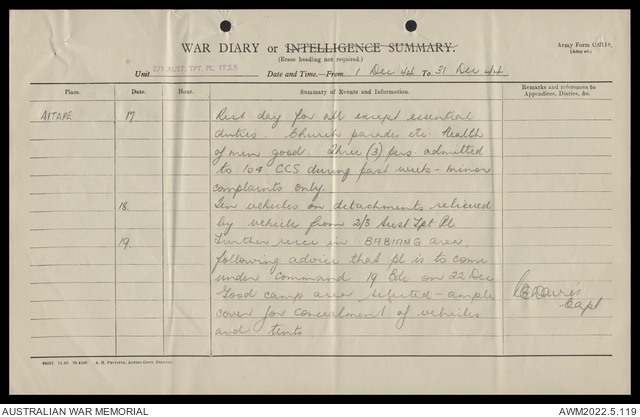 WAR DIARY or INTELLIGENCE SUMMARY.
(Erase heading not required.)
Army Form
Unit 2/1 AUST. TPT. PL. Date and Time—From 1 Dec 44 To 31 Dec 44
Place. Date. Hour. Summary of Events and Information. Remarks and references to Appendices, Diaries, &c.
AITAPE 17 Rest day for all except essential
duties. Church parades etc. Health
of men good. Three (3) pers. admitted
to 104 CCS during past week - minor
complaints only.
18. Ten vehicles on detachments relieved
by vehicles from 2/3 Aust Tpt Pl
19. Further recce in BABIANG area,
following advice that pl is to come
under command 19 Bde on 22 Dec
Good camp area selected - ample
cover for concealment of vehicles
and tents
Capt
A. H. Pettifer, Acting Govt. Printer.
AUSTRALIAN WAR MEMORIAL
AWM2022.5.119